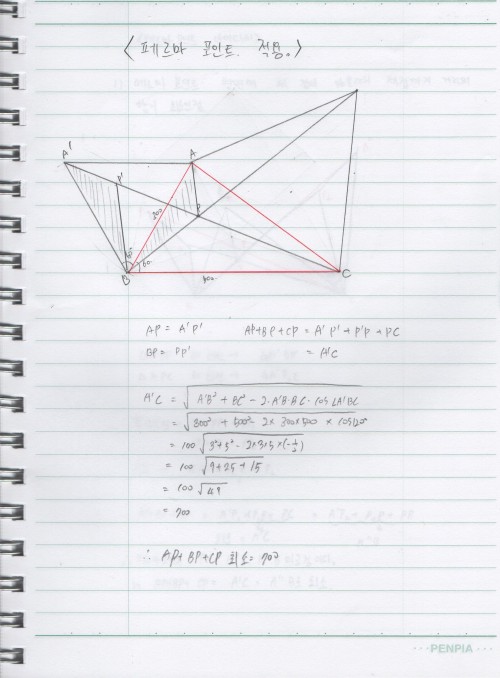 < 페르마 포인트. 적용。>
A'
A
P'
P
300
60
60
B
C
AP = A'P' AP+BP+CP = A'P' + P'P + PC
BP = PP' = A'C
A'C = √A'B² + BC² - 2·A'B·BC·cos∠A'BC
= √300² + 500² - 2×300×500 × cos120°
= 100 √3²+5² - 2×3×5×(-1/2)
= 100 √9+25+15
= 100 √49
= 700
∴ AP+BP+CP 최소 = 700
PENPIA